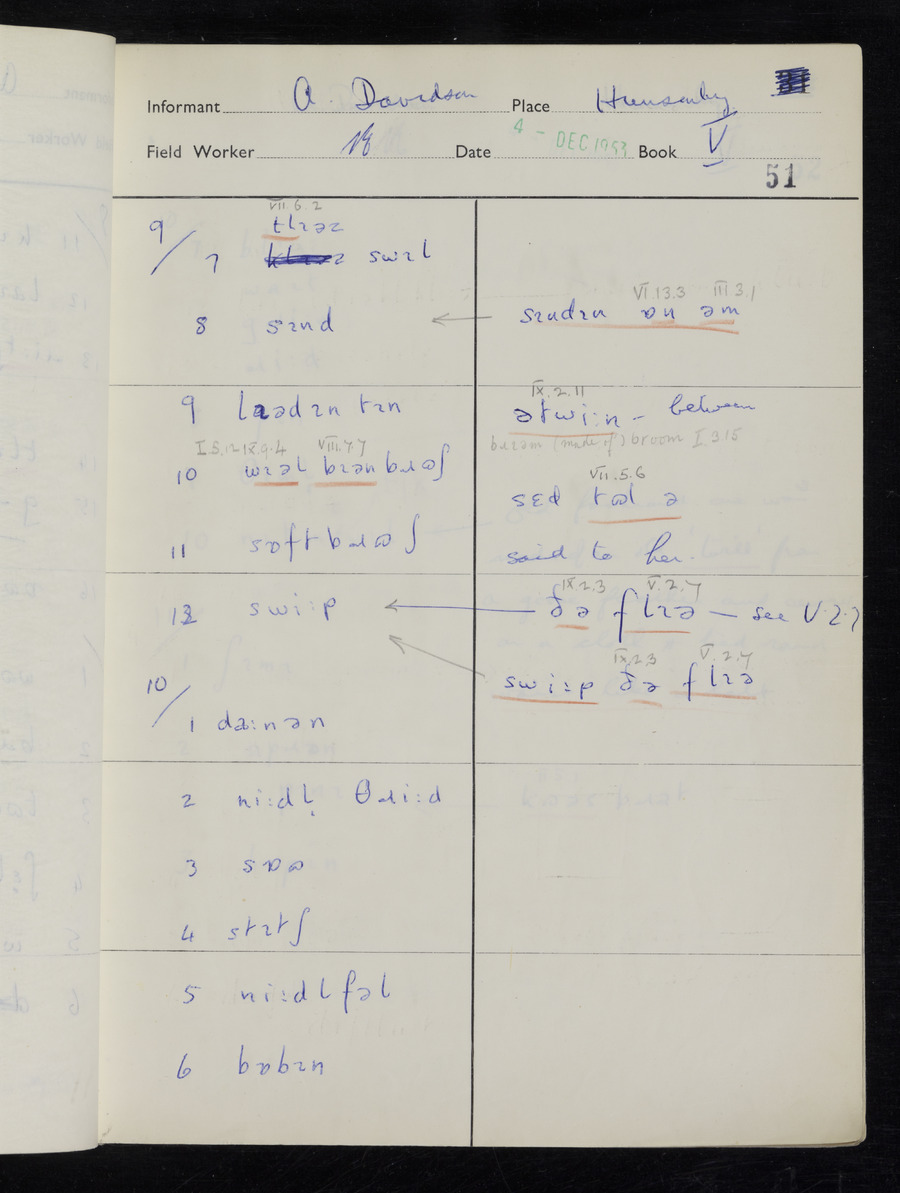 Informant A. Davidson Place Hunsonby
Field Worker Date 4 - DEC 1953 Book V
51
VII.6.2
9/ tlɪəz
7 swɪl
VI.13.3 III.3.1
8 sɪnd sɪndɪn ɒn əm
IX.2.11
9 laadɪn tɪn ətwi:n - between
I.5.12 IX.9.4 VIII.7.7 (made of) broom I.3.15
10 wɪəl bɪən bɹʊʃ
VII.5.6
sɛd tʊl ə
11 sɒft bɹʊʃ said to her.
IX.2.3 V.2.7
12 swi:p ðə flɪə — see V.2.7
IX.2.3 V.2.7
swi:p ðə flɪə
10/
1 da:nən
2 ni:dl̩ θɹi:d
3 sɒʊ
4 stɪtʃ
5 ni:dlfəl
6 bɒbɪn